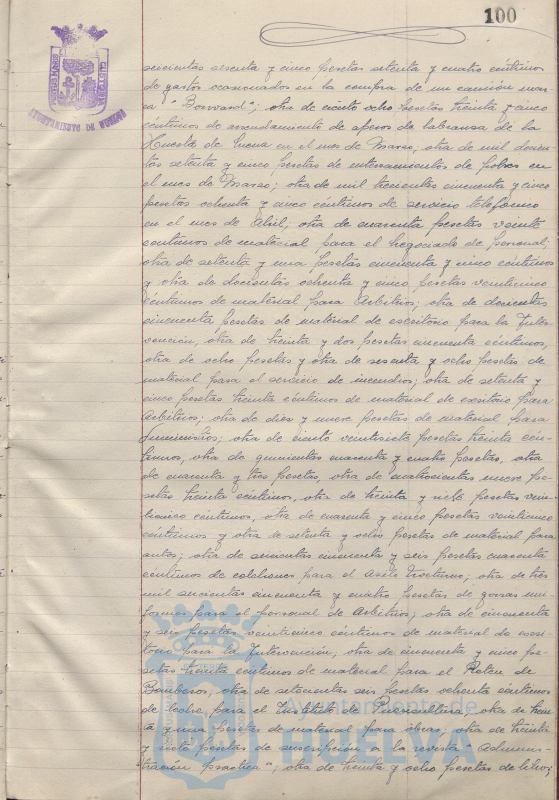 100
AYUNTAMIENTO DE HUELVA
seiscientas sesenta y cinco pesetas setenta y cuatro céntimos
de gastos ocasionados en la compra de un camión mar-
ca "Borward"; otra de ciento ocho pesetas treinta y cinco
céntimos de arrendamiento de aperos de labranza de la
Huerta de Mena en el mes de Marzo, otra de mil doscien-
tas setenta y cinco pesetas de enterramientos de pobres en
el mes de Marzo; otra de mil trescientas cincuenta y cinco
pesetas ochenta y cinco céntimos de servicio telefónico
en el mes de Abril; otra de cuarenta pesetas veinte
céntimos de material para el Negociado de personal;
otra de setenta y una pesetas cincuenta y cinco céntimos
y otra de doscientas ochenta y cinco pesetas veinticinco
céntimos de material para Arbitrios; otra de doscientas
cincuenta pesetas de material de escritorio para la Inter-
vención, otra de treinta y dos pesetas cincuenta céntimos,
otra de ocho pesetas y otra de sesenta y ocho pesetas de
material para el servicio de incendios; otra de setenta y
cinco pesetas treinta céntimos de material de escritorio para
Arbitrios; otra de diez y nueve pesetas de material para
Suministros; otra de ciento veintisiete pesetas treinta cén-
timos, otra de quinientas cuarenta y cuatro pesetas, otra
de cuarenta y tres pesetas, otra de cuatrocientas nueve pe-
setas treinta céntimos, otra de treinta y siete pesetas vein-
ticinco céntimos, otra de cuarenta y cinco pesetas veinticinco
céntimos y otra de setenta y ocho pesetas de material para
autos; otra de seiscientas cincuenta y seis pesetas cuarenta
céntimos de colchones para el Asilo Nocturno, otra de tres
mil seiscientas cincuenta y cuatro pesetas de gorras uni-
formes para el personal de Arbitrios; otra de cincuenta
y seis pesetas veinticinco céntimos de material de escri-
torio para la Intervención, otra de cincuenta y cinco pe-
setas treinta céntimos de material para el Retén de
Bomberos, otra de setecientas seis pesetas ochenta céntimos
de leche para el Instituto de Puericultura, otra de trein-
ta y una pesetas de material para obras, otra de treinta
y siete pesetas de suscripción a la revista "Adminis-
tración práctica"; otra de treinta y ocho pesetas de libros
Ayuntamiento de
HUELVA